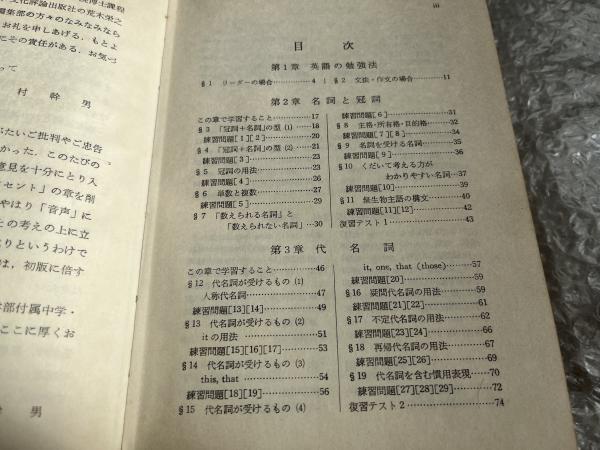 博士課程
文化評論出版社の荒木栄之
編集部の方々のなみなみなら
お礼を申しあげる．もとよ
にその責任がある．お気づ
って
村 幹 男
ぶたいご批判やご忠告
かった．このたびの
意見を十分にとり入
セント」の章を削
やはり「音声」に
との考えの上に立
りというわけで
は，初版に倍す
学部付属中学・
ここに厚くお
幹 男
iii
目 次
第1章 英語の勉強法
§1 リーダーの場合……………4
§2 文法・作文の場合…………11
第2章 名詞と冠詞
この章で学習すること…………17
§3 「冠詞＋名詞」の型 (1) ……18
練習問題[1][2]……………20
§4 「冠詞＋名詞」の型 (2)……21
練習問題[3]…………………23
§5 冠詞の用法…………………23
練習問題[4]…………………26
§6 単数と複数…………………27
練習問題[5]…………………29
§7 「数えられる名詞」と
「数えられない名詞」…30
練習問題[6]…………………31
§8 主格・所有格・目的格………32
練習問題[7][8]……………34
§9 名詞を受ける名詞…………35
練習問題[9]…………………36
§10 くだいて考える力が
わかりやすい名詞…37
練習問題[10]…………………39
§11 無生物主語の構文…………40
練習問題[11][12]……………42
復習テスト1……………………43
第3章 代 名 詞
この章で学習すること…………46
§12 代名詞が受けるもの (1)
人称代名詞…………………47
練習問題[13][14]……………49
§13 代名詞が受けるもの (2)
itの用法……………………51
練習問題[15][16][17]………53
§14 代名詞が受けるもの (3)
this, that……………………54
練習問題[18][19]……………56
§15 代名詞が受けるもの (4)
it, one, that (those)…………57
練習問題[20]…………………59
§16 疑問代名詞の用法…………59
練習問題[21][22]……………61
§17 不定代名詞の用法…………62
練習問題[23][24]……………66
§18 再帰代名詞の用法…………67
練習問題[25][26]……………69
§19 代名詞を含む慣用表現……70
練習問題[27][28][29]………72
復習テスト2……………………74